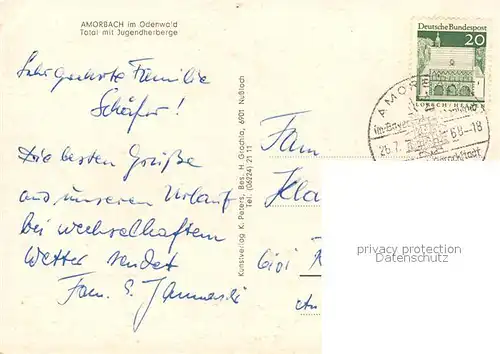 AMORBACH im Odenwald
Total mit Jugendherberge
Sehr geehrte Familie
Schäfer!
Die besten Grüße
aus unserem Urlaub
bei wechselhaftem
Wetter sendet
Fam.
Kunstverlag K. Peters, Bes. H Grochla, 6901 Nußloch
Tel. (06224) 21 11
Deutsche Bundespost
20
LORSCH / HESSEN
AMOR
26.7. 68-18
Fam
Kla
privacy protection
Datenschutz
6101